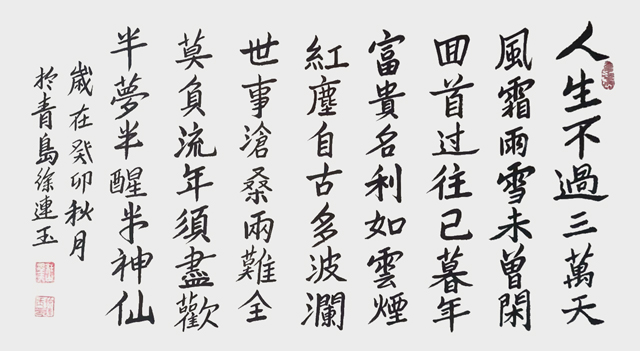 人生不過三萬天
風霜雨雪未曾閑
回首过往已暮年
富貴名利如雲煙
紅塵自古多波瀾
世事滄桑兩難全
莫負流年須盡歡
半夢半醒半神仙
歲在癸卯秋月
於青島徐連玉